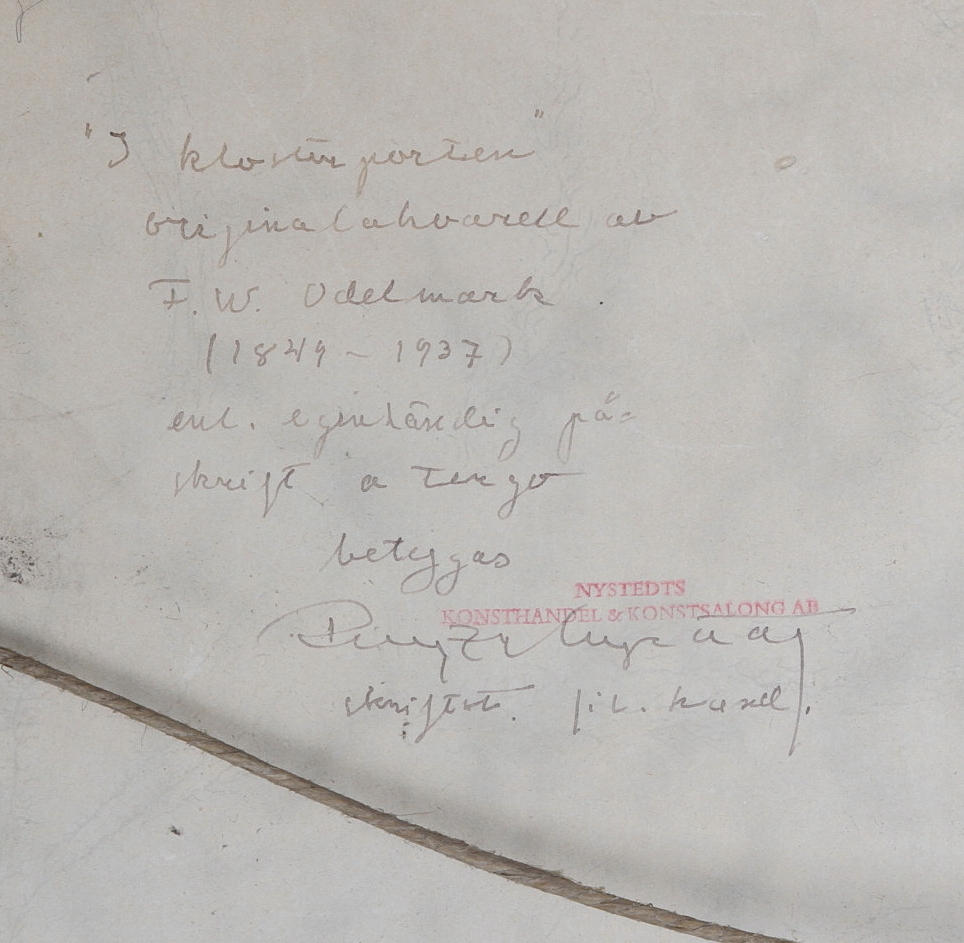 "I klosterporten"
originalakvarell av
F. W. Odelmark
(1849 - 1937)
enl. egenhändig på=
skrift a tergo
betygas
NYSTEDTS
KONSTHANDEL & KONSTSALONG AB
skriftst. fil. kand.